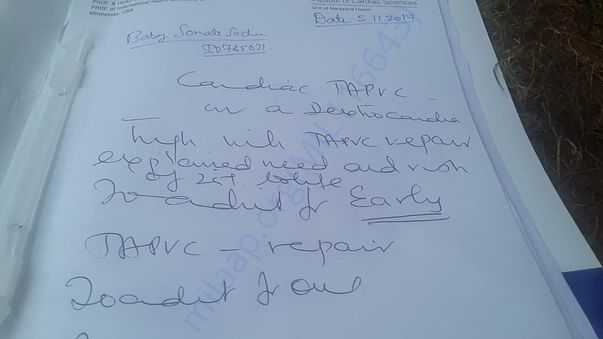 PROF. & HEAD
PROF. of International Health
Minnesota, USA
Institute of Cardiac Sciences
Unit of Narayana Health
Date: 5.11.2017
Baby Sonali
Cardiac TAPVC
in a Dextrocardia
high risk TAPVC repair
explained need and risk
of 25% to life
To admit for Early
TAPVC - repair
To admit for
milaap.org